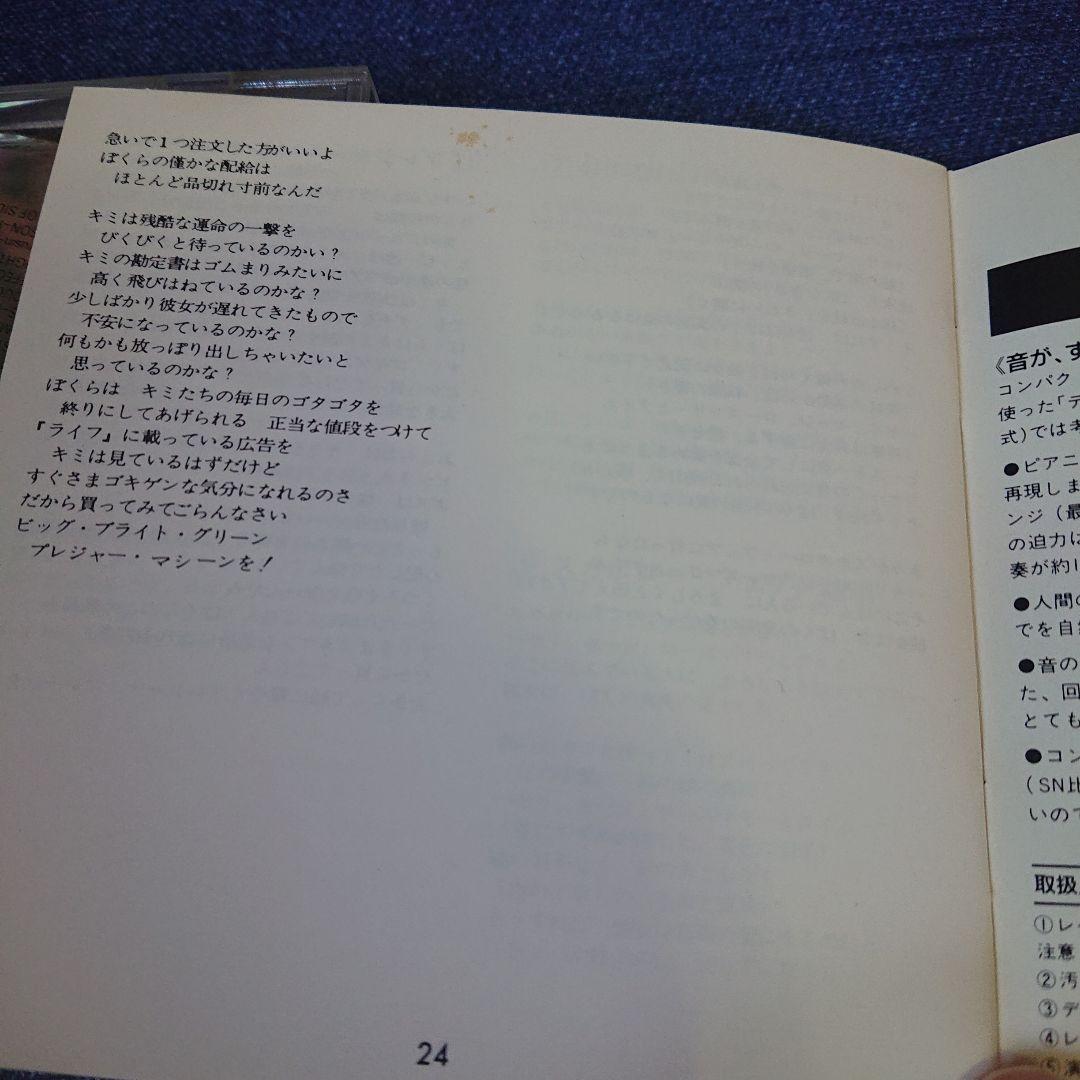 急いで1つ注文した方がいいよ
ぼくらの僅かな配給は
ほとんど品切れ寸前なんだ
キミは残酷な運命の一撃を
びくびくと待っているのかい？
キミの勘定書はゴムまりみたいに
高く飛びはねているのかな？
少しばかり彼女が遅れてきたもので
不安になっているのかな？
何もかも放っぽり出しちゃいたいと
思っているのかな？
ぼくらは　キミたちの毎日のゴタゴタを
終りにしてあげられる　正当な値段をつけて
『ライフ』に載っている広告を
キミは見ているはずだけど
すぐさまゴキゲンな気分になれるのさ
だから買ってみてごらんなさい
ビッグ・ブライト・グリーン
プレジャー・マシーンを！
24
《音が、す
コンパク
使った「デ
式)では考
●ピアニ
再現しま
ンジ（最
の迫力は
奏が約1
●人間の
でを自然
●音の
た、回
とても
●コン
（SN比
いので
取扱
①レ
注意
②汚
③デ
④レ
⑤演